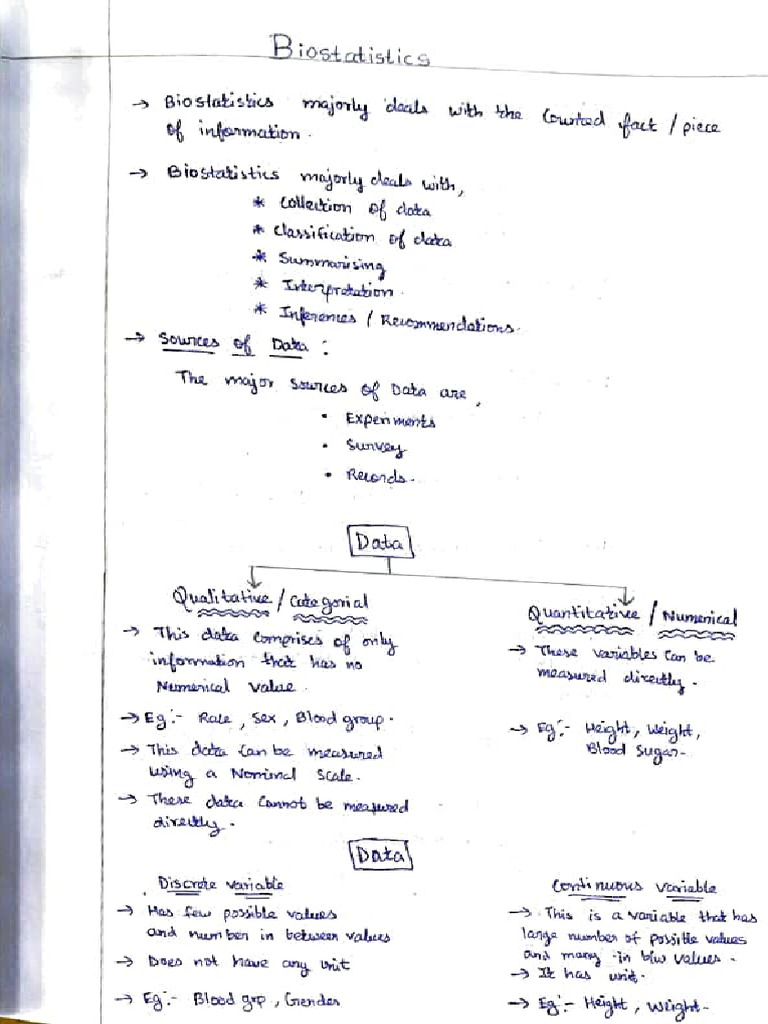 Biostatistics
→ Biostatistics majorly deals with the Counted fact / piece
of information.
→ Biostatistics majorly deals with,
* Collection of data
* Classification of data
* Summarising
* Interpretation.
* Inferences / Recommendations.
→ Sources of Data :
The major sources of Data are,
• Experiments
• Survey
• Records.
Data
Qualitative / Categorial
→ This data comprises of only
information that has no
Numerical value.
→ Eg:- Race, Sex, Blood group.
→ This data can be measured
using a Nominal Scale.
→ These data cannot be measured
directly.
Quantitative / Numerical
→ These variables can be
measured directly.
→ Eg:- Height, Weight,
Blood Sugar.
Data
Discrete variable
→ Has few possible values
and number in between values
→ Does not have any unit
→ Eg:- Blood grp, Gender
Continuous variable
→ This is a variable that has
large number of possible values
and many in b/w values.
→ It has unit.
→ Eg:- Height, Weight.